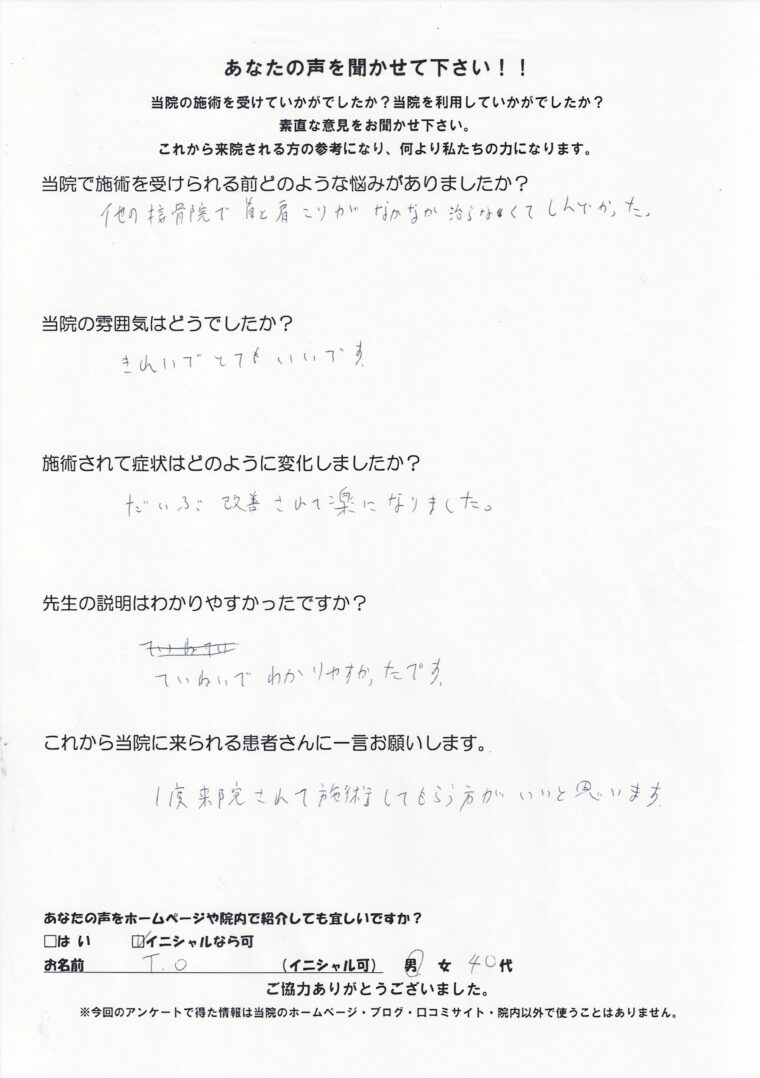 あなたの声を聞かせて下さい！！
当院の施術を受けていかがでしたか？当院を利用していかがでしたか？
素直な意見をお聞かせ下さい。
これから来院される方の参考になり、何より私たちの力になります。
当院で施術を受けられる前どのような悩みがありましたか？
他の接骨院で首と肩こりがなかなか治らなくてしんどかった。
当院の雰囲気はどうでしたか？
きれいでとてもいいです
施術されて症状はどのように変化しましたか？
だいぶ改善されて楽になりました。
先生の説明はわかりやすかったですか？
ていねいでわかりやすかったです
これから当院に来られる患者さんに一言お願いします。
1度来院されて施術してもらう方がいいと思います
あなたの声をホームページや院内で紹介しても宜しいですか？
□はい ☑イニシャルなら可
お名前 T.O （イニシャル可） 男 女 40代
ご協力ありがとうございました。
※今回のアンケートで得た情報は当院のホームページ・ブログ・口コミサイト・院内以外で使うことはありません。